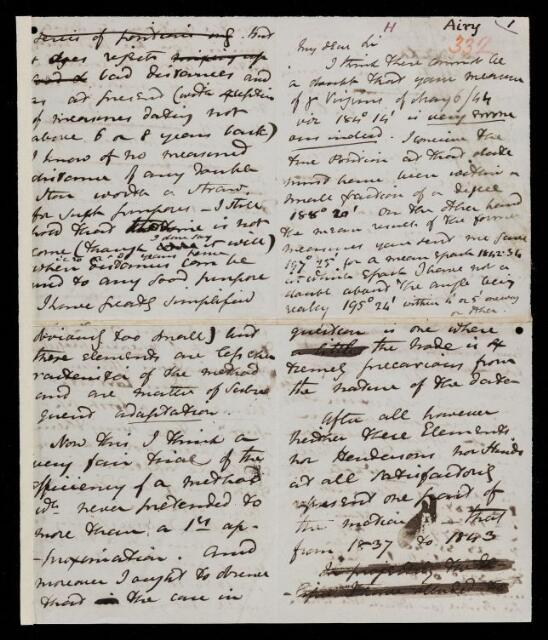 H
Airy
1
332
My dear Sir
I think there cannot be
a doubt that your measure
of γ Virginis of
viz 184° 14' is very
indeed. I conceive the
true Position at that date
must have been within a
small fraction of a degree
188° 20' On the other hand
the mean result of the former
measures you send me
197° 25' for a mean Epoch
which Epoch I have not a
doubt about the angle being
really 195° 24' within
or other
series of positions only. But
it does reject
bad distances and
as at present (with exception
of measures dating not
above 6 or 8 years back)
I know of no measured
distance of any double
Star worth a straw
for such purposes - I still
hold that the time is not
come (though I dare say it will)
years hence
when distances can be
used to any good purpose
I have greatly simplified
obviously too small) but
these elements are less cha
racteristic of the method
and are matter of subse
quent adaptation.
Now this I think a
very fair trial of the
efficiency of a method
wch never pretended to
more than a 1st ap-
-proximation. and
moreover I ought to observe
that the case in
question is one where
the node is ex
tremely precarious from
the nature of the data-
After all however
neither these Elements
nor Hendersons nor Hinds
at all satisfactorily
represent one part of
the motion - that
from 1837 to 1843